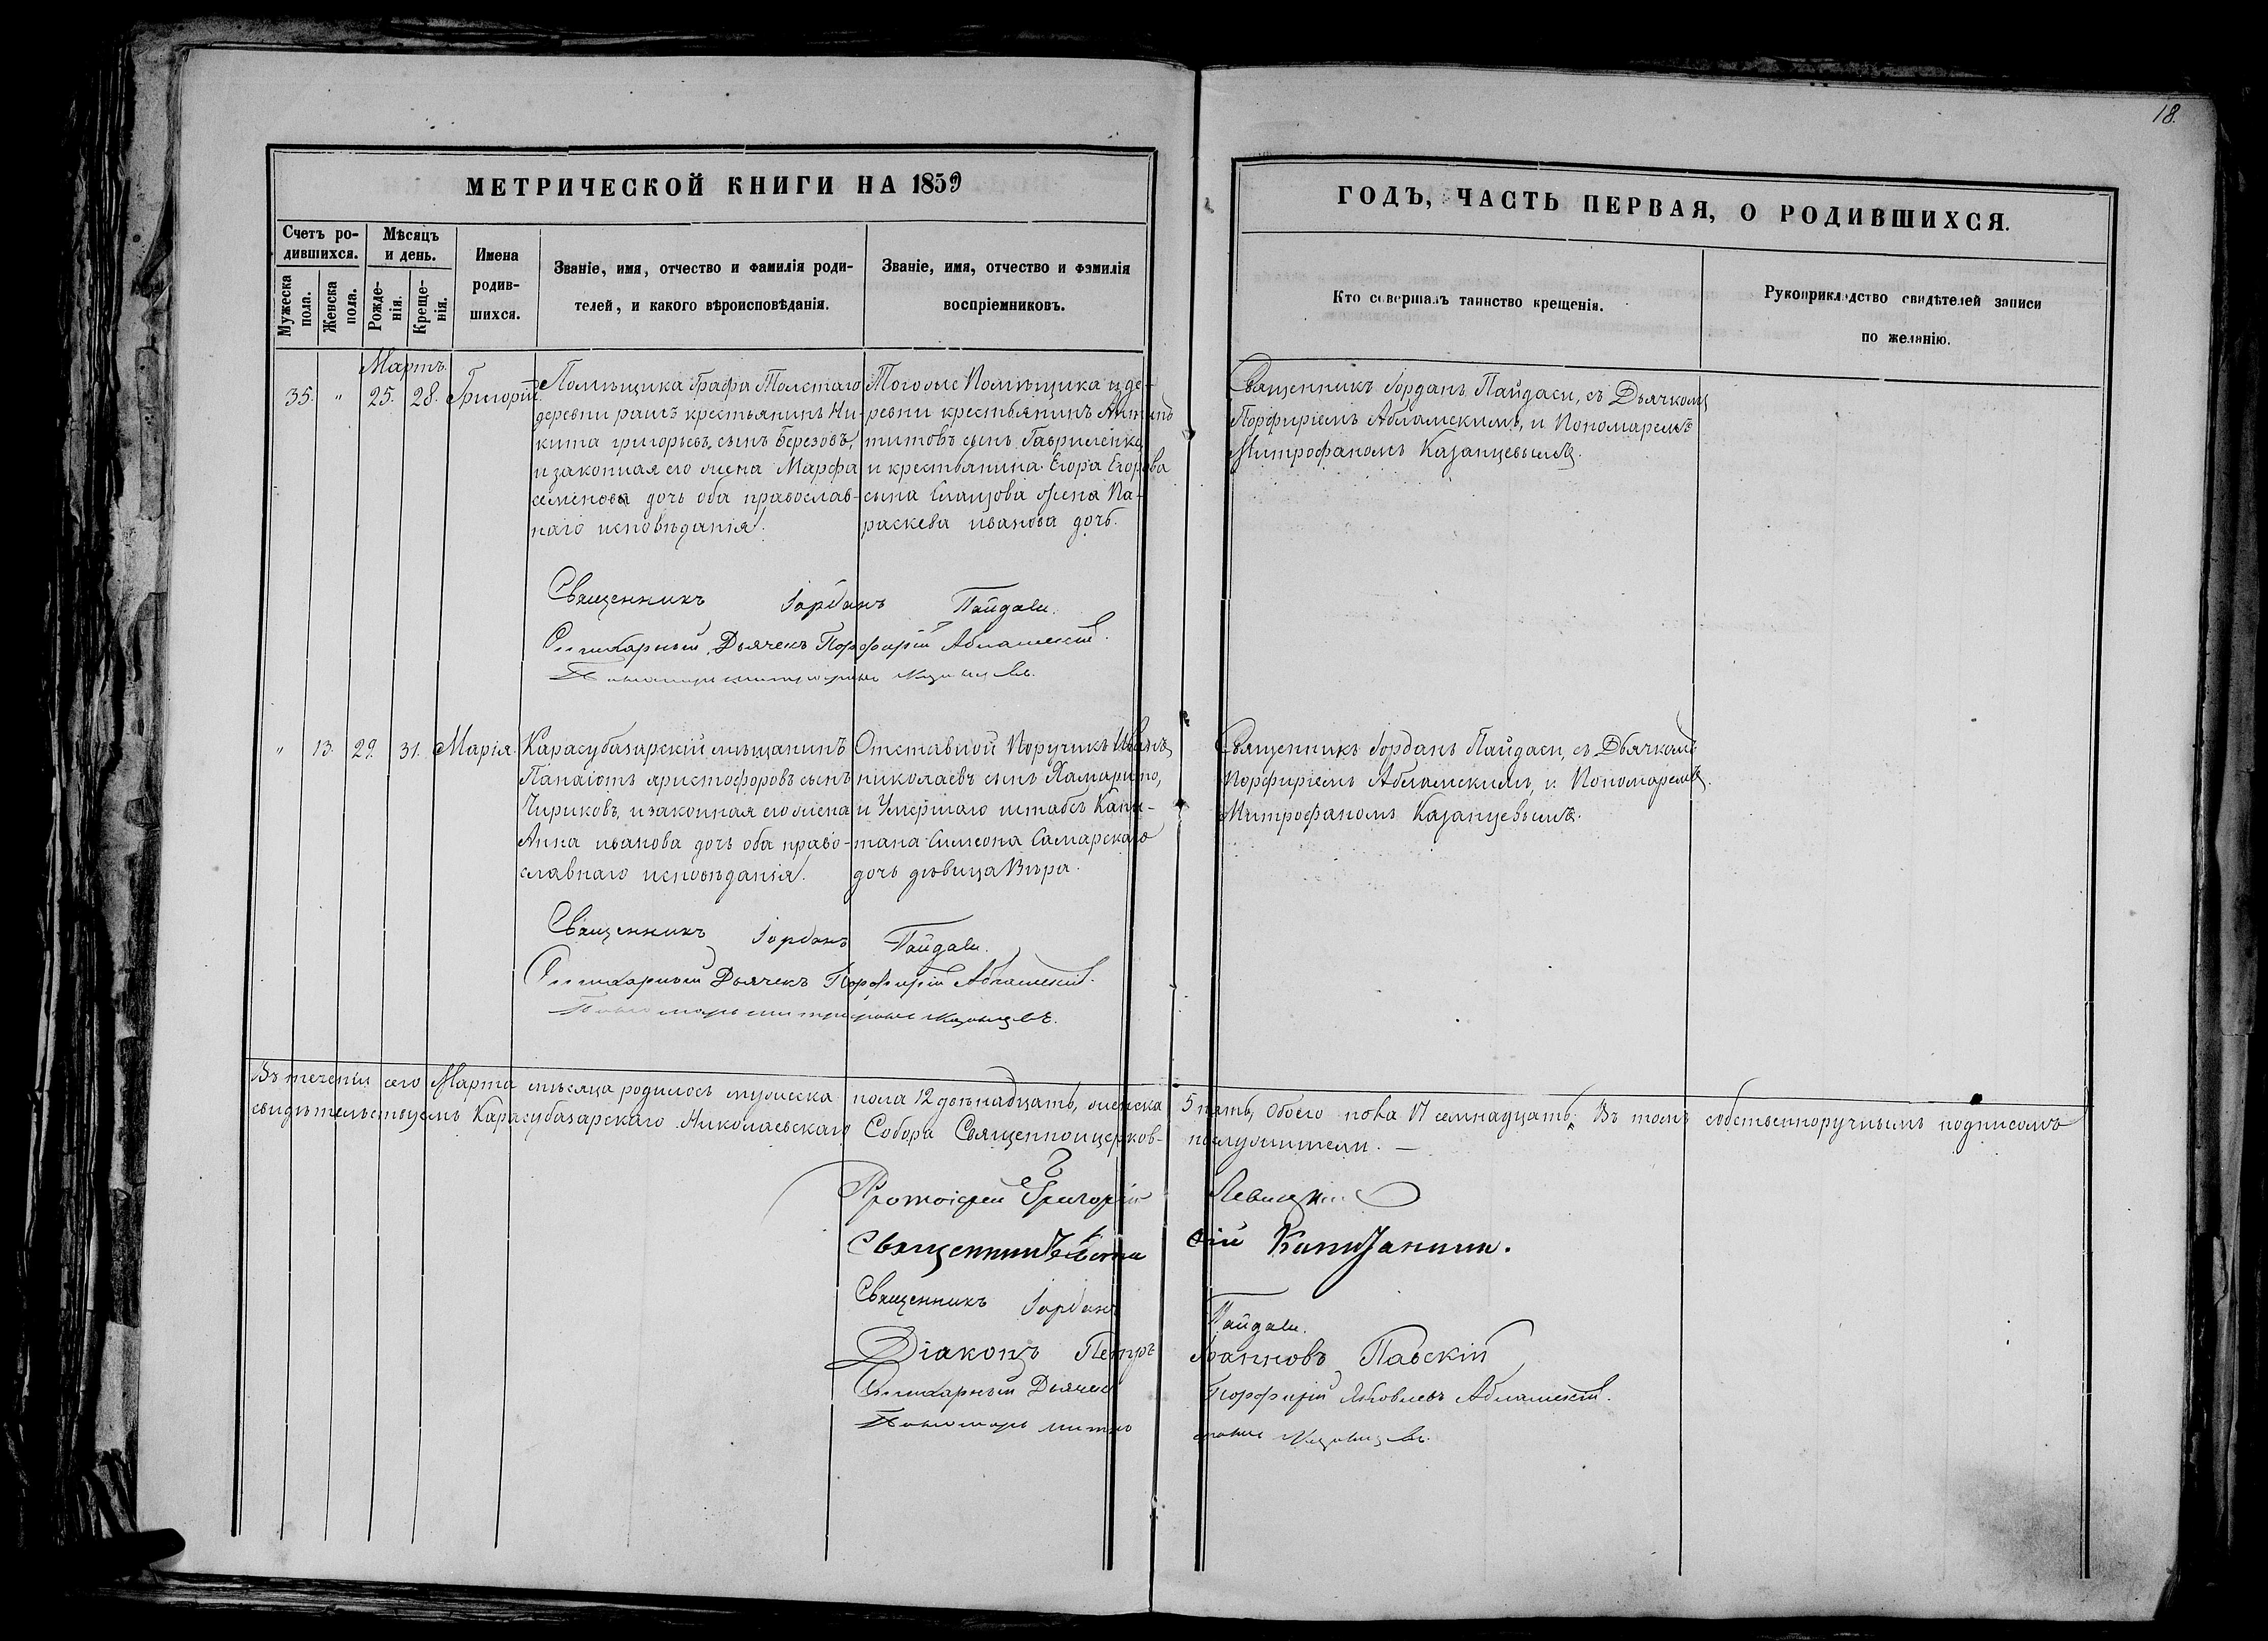 18.
МЕТРИЧЕСКОЙ КНИГИ НА 1859
ГОДЪ, ЧАСТЬ ПЕРВАЯ, О РОДИВШИХСЯ.
Счетъ ро-
дившихся.
Мужеска
пола.
Женска
пола.
Мѣсяцъ
и день.
Рожде-
нія.
Креще-
нія.
Имена
родив-
шихся.
Званіе, имя, отчество и фамилія роди-
телей, и какого вѣроисповѣданія.
Званіе, имя, отчество и фамилія
воспріемниковъ.
Кто совершалъ таинство крещенія.
Рукоприкладство свидѣтелей записи
по желанію.
Мартъ.
35. " 25. 28. Григорій
Помѣщика Графа Толстаго
деревни крестьянинъ Ни-
кита григорьевъ сынъ Березовъ,
и законная его жена Марфа
семенова дочь оба православ-
наго исповѣданія.
Тогоже Помѣщика и де-
ревни крестьянинъ
титовъ сынъ Гавриленко,
и крестьянина Егора Егорова
сына жена Па-
раскева иванова дочь.
Священникъ Іорданъ Пайдаси, съ Дьячкомъ
Порфиріемъ Абламскимъ, и Пономаремъ
Митрофаномъ Казанцевымъ.
Священникъ Іорданъ Пайдаси.
Стихарный Дьячекъ Порфирій Абламскій.
Пономарь митрофанъ Казанцевъ.
" 13. 29. 31. Марія.
Карасубазарскій мѣщанинъ
Панаіотъ аристофоровъ сынъ
Чириковъ, и законная его жена
Анна иванова дочь оба право-
славнаго исповѣданія.
Отставной Поручикъ Иванъ
николаевъ сынъ
и Умершаго штабсъ Капи-
тана Симеона Самарскаго
дочь дѣвица Вѣра.
Священникъ Іорданъ Пайдаси, съ Дьячкомъ
Порфиріемъ Абламскимъ, и Пономаремъ
Митрофаномъ Казанцевымъ.
Священникъ Іорданъ Пайдаси.
Стихарный Дьячекъ Порфирій Абламскій.
Пономарь митрофанъ Казанцевъ.
Въ теченіи сего Марта мѣсяца родилось мужеска пола 12 двѣнадцать, женска 5 пять, обоего пола 17 семнадцать; Въ томъ собственноручнымъ подписомъ
свидѣтельствуемъ Карасубазарскаго Николаевскаго Собора Священноцерков-нослужители. —
Протоіерей Григорій Левицкій
Священникъ
Священникъ Іорданъ Пайдаси.
Діаконъ Петръ Іоанновъ Павскій
Стихарный Дьячекъ Порфирій Яковлевъ Абламскій.
Пономарь митрофанъ Казанцевъ.